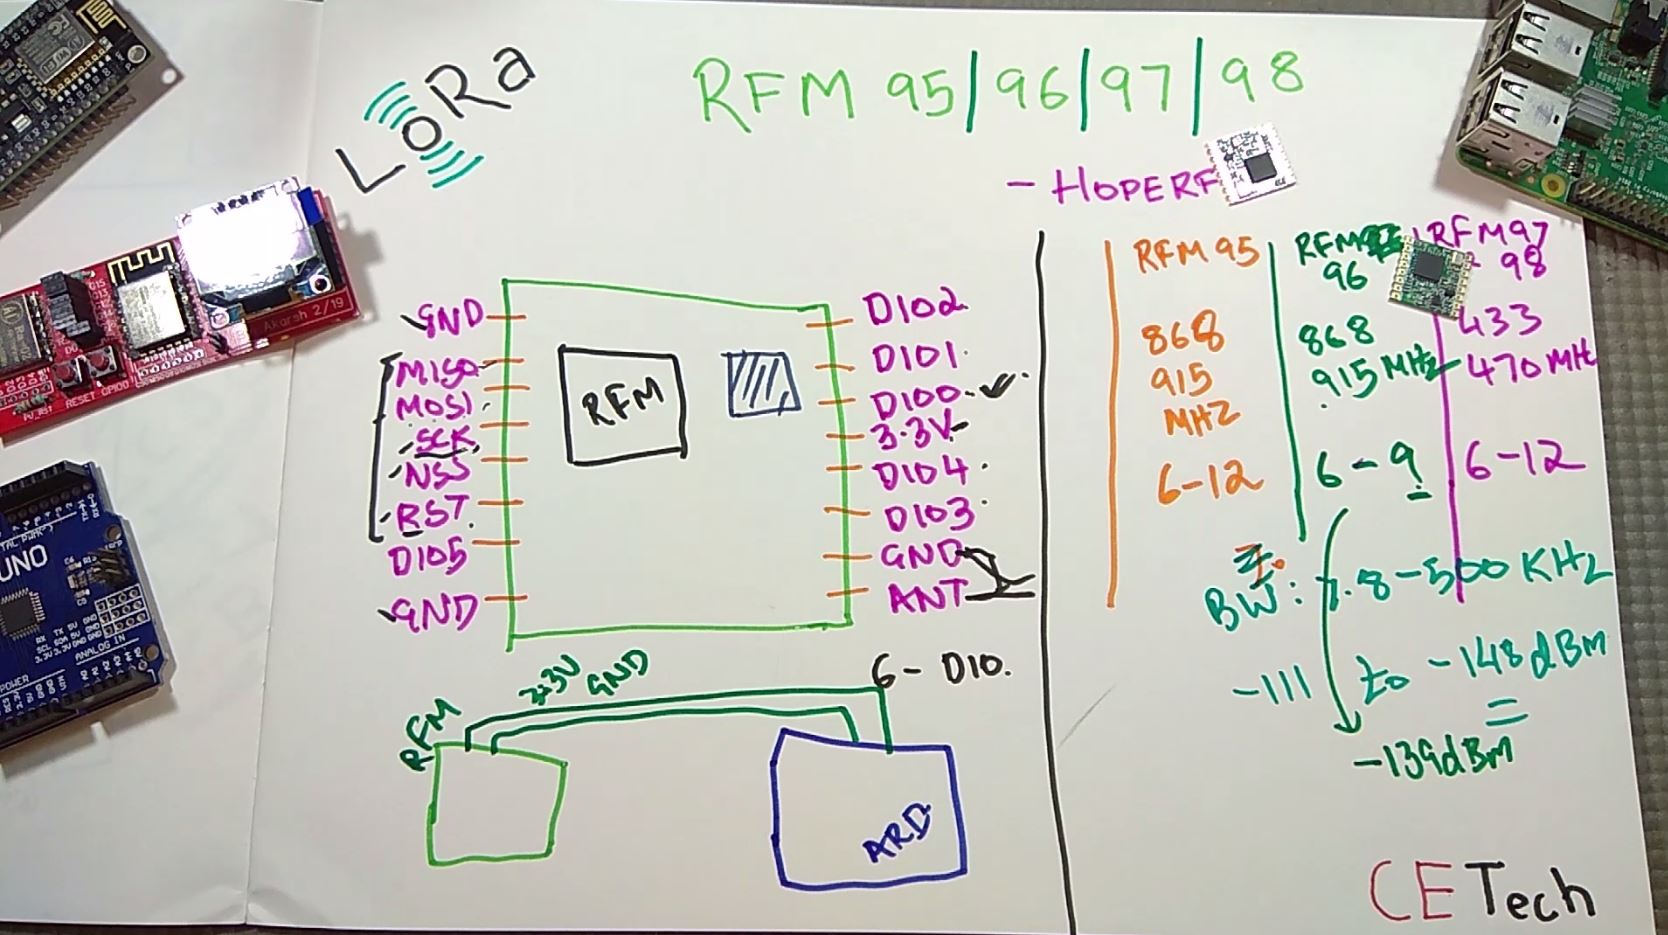 LoRa
RFM 95/96/97/98
- HOPERF
RFM 95
868
915
MHZ
6-12
RFM
96
868
915 MHz
6-9
RFM97
98
433
470 MHz
6-12
BW: 7.8-500 KHz
-111 to -148 dBm
-139dBm
GND
MISO
MOSI
SCK
NSS
RST
DIO5
GND
RFM
DIO2
DIO1
DIO0
3.3V
DIO4
DIO3
GND
ANT
6- DIO.
3.3V GND
RFM
ARD
CETech
Akarsh 2/19
RESET GPIO0
UNO
ANALOG IN
POWER